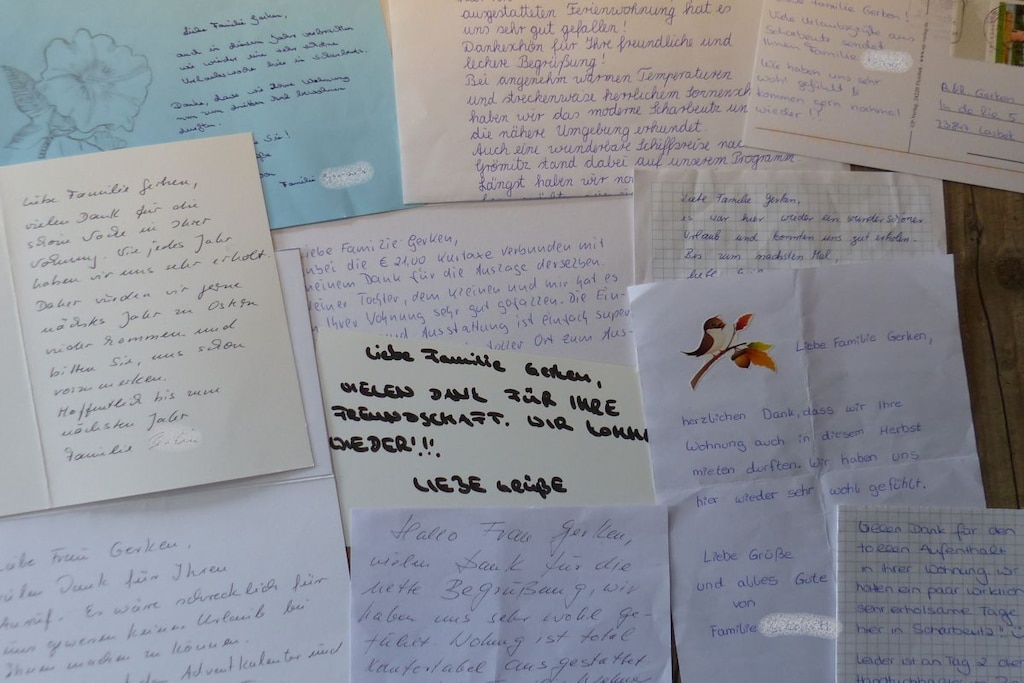 Liebe Familie Gerken,
auch in diesem Jahr verbrachten
wir wieder eine sehr schöne
Urlaubswoche hier in Scharbeutz.
Danke, dass wir Ihre Wohnung
dürfen.
Familie
ausgestatteten Ferienwohnung hat es
uns sehr gut gefallen!
Dankeschön für Ihre freundliche und
leckere Begrüßung!
Bei angenehm warmen Temperaturen
und streckenweise herrlichem Sonnensch
haben wir das moderne Scharbeutz un
die nähere Umgebung erkundet.
Auch eine wunderbare Schiffsreise nac
Grömitz stand dabei auf unserem Programm.
Längst haben wir no
Liebe Familie Gerken!
Viele Urlaubsgrüße aus
Scharbeutz sendet
Ihnen Familie
Wir haben uns sehr
wohl gefühlt &
kommen gern nochmal
wieder!!
Gerken
Liebe Familie Gerken,
vielen Dank für die
schöne Woche in Ihrer
Wohnung. Wie jedes Jahr
haben wir uns sehr erholt.
Daher würden wir gerne
nächstes Jahr zu Ostern
wieder kommen und
bitten Sie, uns schon
vorzumerken.
Hoffentlich bis zum
nächsten Jahr
Familie
iebe Familie Gerken,
bei die € 21,00 Kurtaxe verbunden mit
meinem Dank für die Auslage derselben.
einer Tochter, dem Kleinen und mir hat es
Ihrer Wohnung sehr gut gefallen. Die Ein-
und Ausstattung ist einfach super
toller Ort zum Aus-
Liebe Familie Gerken,
es war hier wieder ein wunderschöner
Urlaub und konnten uns gut erholen.
Bis zum nächsten Mal,
liebe
Liebe Familie Gerken,
VIELEN DANK FÜR IHRE
FREUNDSCHAFT. WIR KOMME
WIEDER!!!
LIEBE GRÜßE
Liebe Familie Gerken,
herzlichen Dank, dass wir Ihre
Wohnung auch in diesem Herbst
mieten durften. Wir haben uns
hier wieder sehr wohl gefühlt.
Liebe Grüße
und alles Gute
von
Familie
iebe Frau Gerken,
vielen Dank für Ihren
Anruf. Es wäre schrecklich für
uns gewesen keinen Urlaub bei
Ihnen machen zu können.
Adventkalender und
Hallo Frau Gerken,
vielen Dank für die
nette Begrüßung, wir
haben uns sehr wohl ge-
fühlt. Wohnung ist total
komfortabel ausgestattet
Vielen Dank für den
tollen Aufenthalt
in Ihrer Wohnung. Wir
hatten ein paar wirklich
sehr erholsame Tage
hier in Scharbeutz!!
Leider ist an Tag 2 der